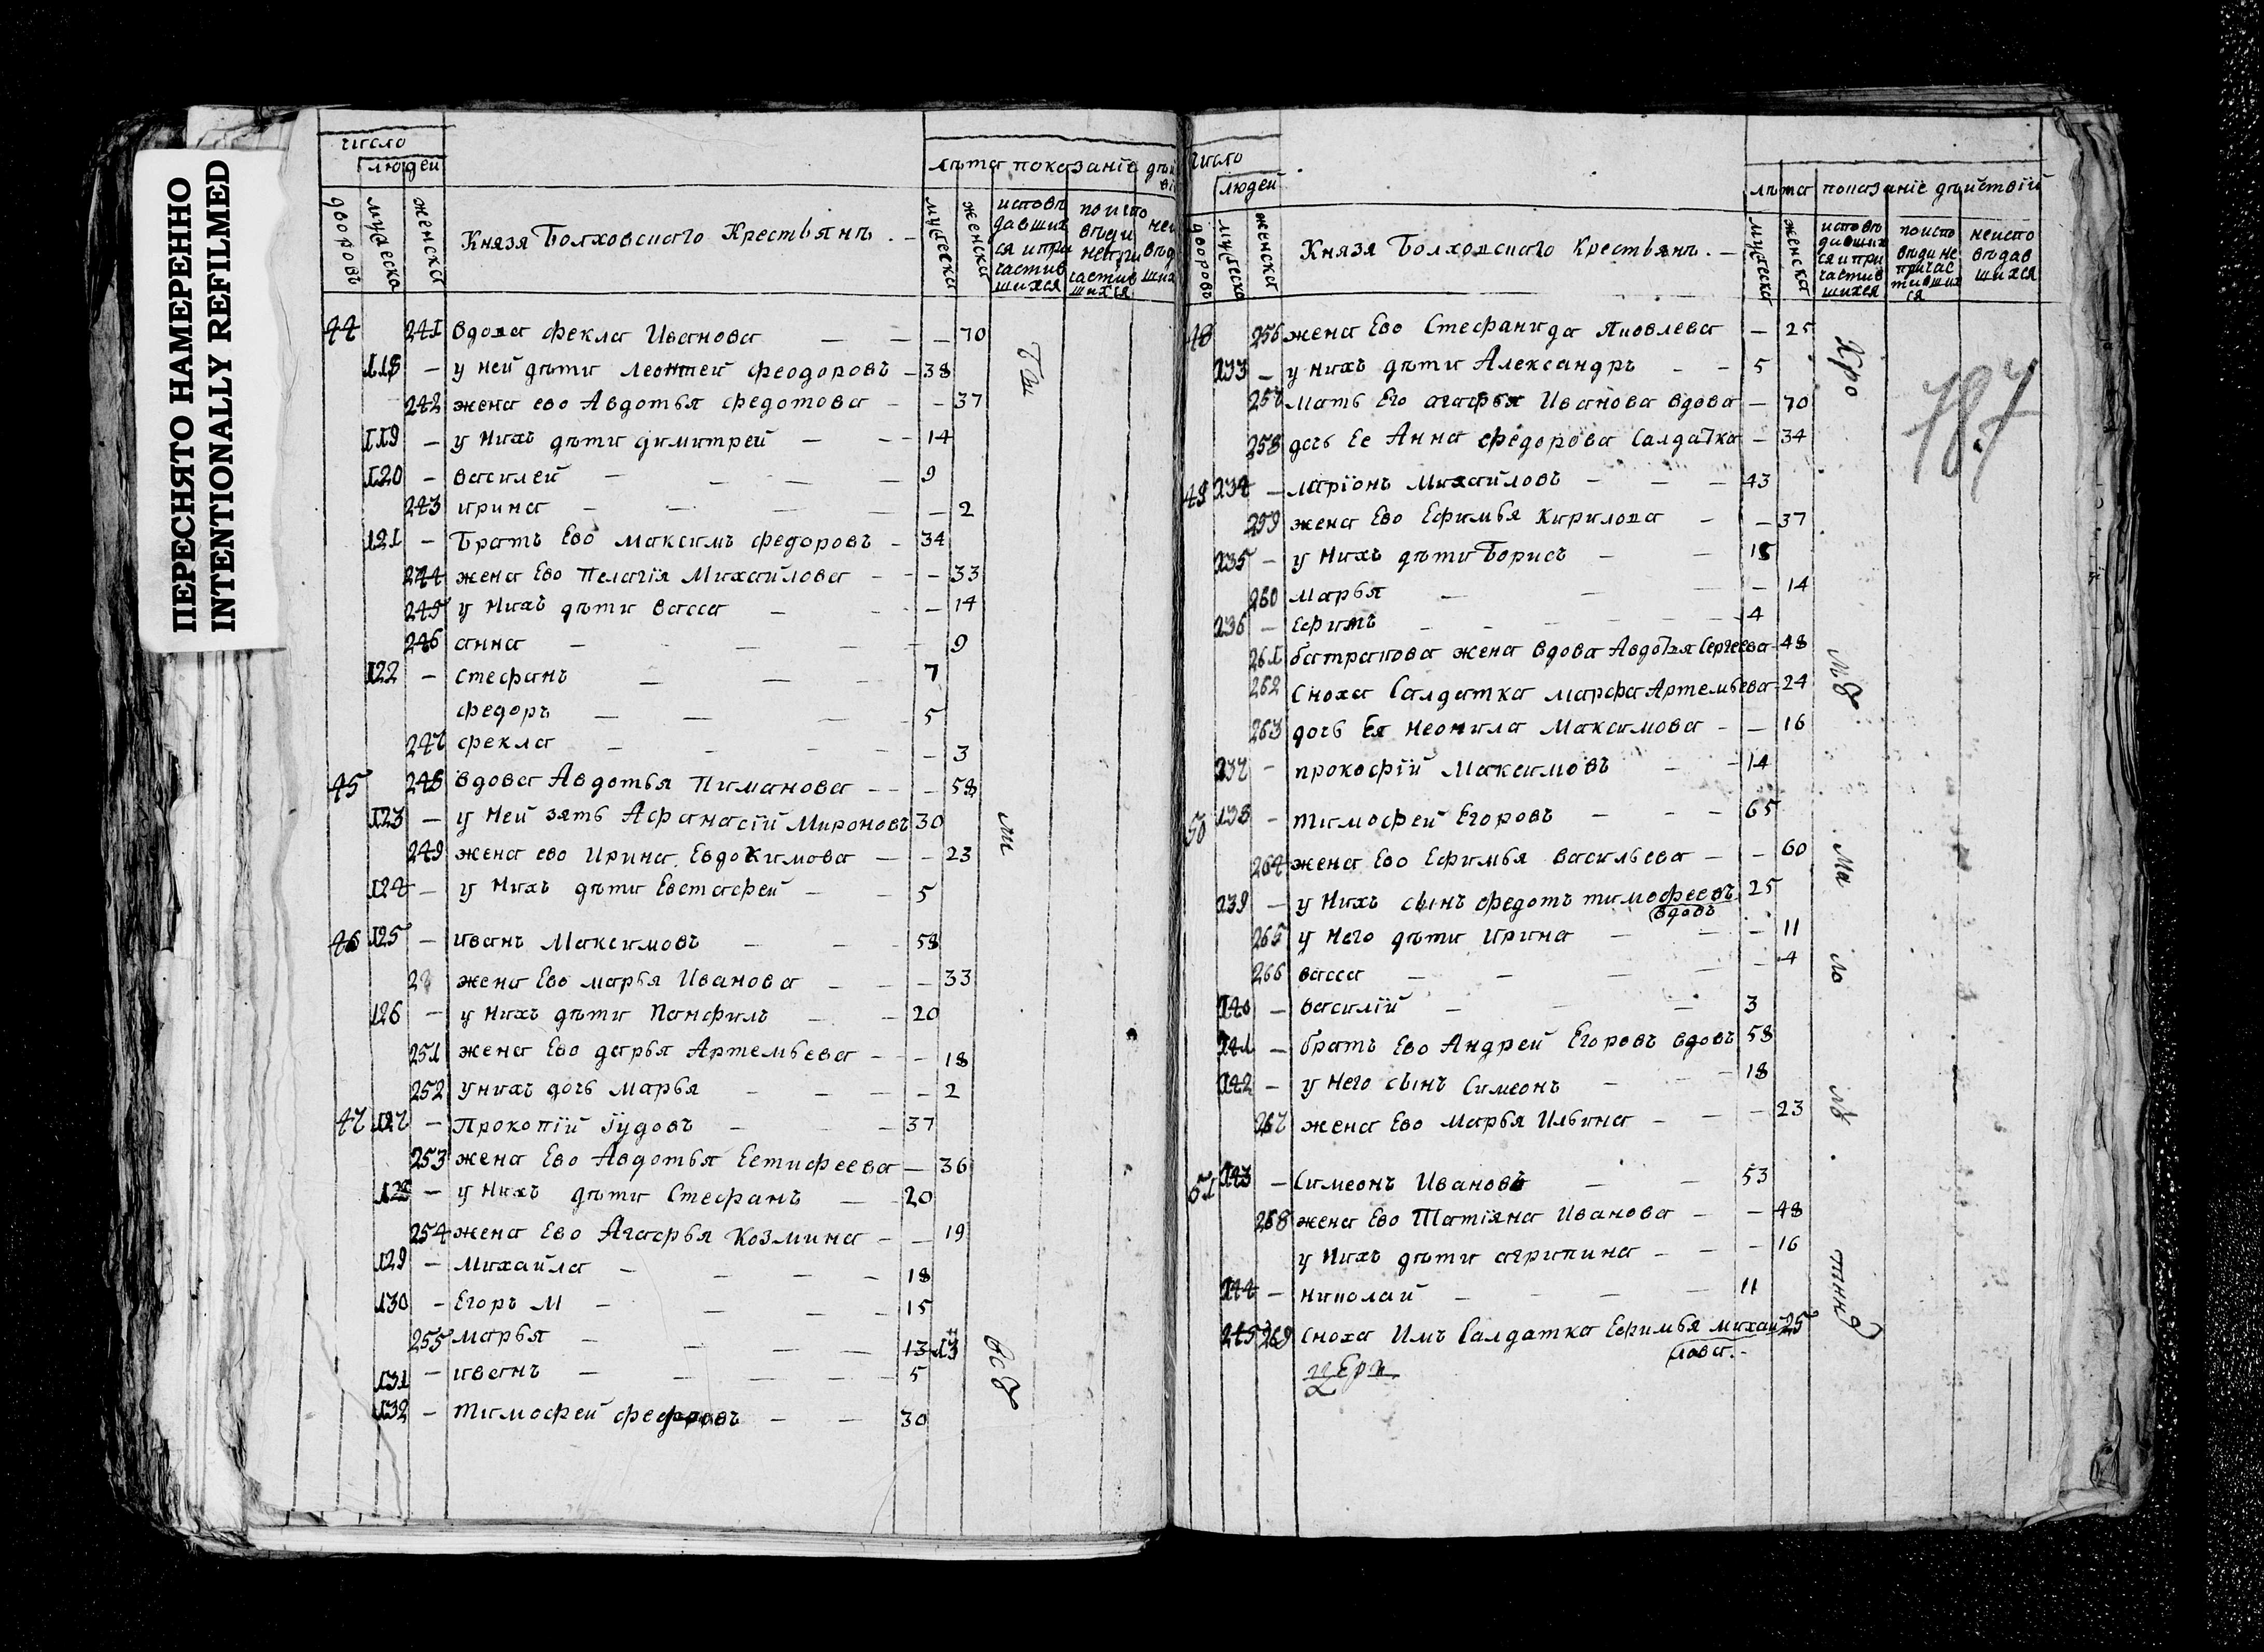 ПЕРЕСНЯТО НАМЕРЕННО
INTENTIONALLY REFILMED
число
людей
дворовъ
мужеска
женска
Князя Болховскаго Крестьянъ.
лѣта показаніе дѣй
мужеска
женска
исповѣ
давших
ся и при
частив
шихся
по испо
вѣди
непри
частив
шихся
44 241 вдова Фекла Иванова — 70
118 — у ней дѣти Леонтей Феодоровъ — 38
242 жена ево Авдотья Федотова — — 37
119 — у нихъ дѣти Димитрей — 14
120 — василей — 9
243 ирина — — 2
121 — Братъ Ево Максимъ Федоровъ — 34
244 жена Ево Пелагїя Михайлова — — 33
245 у нихъ дѣти васса — — 14
246 анна — — 9
122 — стефанъ — 7
федоръ — 5
247 фекла — — 3
45 248 вдова Авдотья Пиманова — — 58
123 — у ней зять Афанасїй Мироновъ 30
249 жена ево Ирина Евдокимова — — 23
124 — у нихъ дѣти Евстафей — 5
46 125 — иванъ Максимовъ — 58
жена Ево марья Иванова — — 33
126 — у нихъ дѣти Панфилъ — 20
251 жена Ево дарья Артемьева — — 18
252 у нихъ дочь марья — — 2
47 127 — Прокопїй Їудовъ — 37
253 жена Ево Авдотья Естифеева — 36
128 — у нихъ дѣти Стефанъ — 20
254 жена Ево Агафья Козмина — — 19
129 — Михайла — 18
130 — Егоръ М — 15
255 марья — 13 13
131 — иванъ — 5
132 — Тимофей федоровъ — 30
число
людей
дворовъ
мужеска
женска
Князя Болховскаго Крестьянъ.
лѣта показанїе дѣйствїй
мужеска
женска
исповѣ
давших
ся и при
частив
шихся
по испо
вѣди не
причас
тивших
ся
неиспо
вѣдав
шихся
787
48 256 жена Ево Стефанида Яковлева — 25
133 — у нихъ дѣти Александръ — 5
257 мать Его агафья Иванова вдова — 70
258 дочь Ее Анна федорова Салдатка — 34
49 134 — ларїонъ Михайловъ — 43
259 жена Ево Ефимья Кирилова — — 37
135 — у нихъ дѣти Борисъ — 18
260 марья — — 14
136 — Ефимъ — 4
261 батракова жена вдова Авдотья Сергеева 48
262 Сноха Салдатка марфа Артемьева 24
263 дочь Ея Неонила Максимова — — 16
137 — прокофїй Максимовъ — 14
50 138 — тимофей Егоровъ — 65
264 жена Ево Ефимья васильева — — 60
139 — у нихъ сынъ федотъ тимофеевъ 25
вдовъ
265 у него дѣти ирина — — 11
266 васса — — 4
140 — василїй — 3
141 — братъ Ево Андрей Егоровъ вдовъ 58
142 — у него сынъ Симеонъ — 18
267 жена Ево марья Ильина — — 23
51 143 — Симеонъ Ивановъ — 53
268 жена Ево Татїяна Иванова — — 48
у нихъ дѣти агрипина — — 16
144 — николай — 11
145 269 сноха Имъ Салдатка Ефимья михай 25
лова.